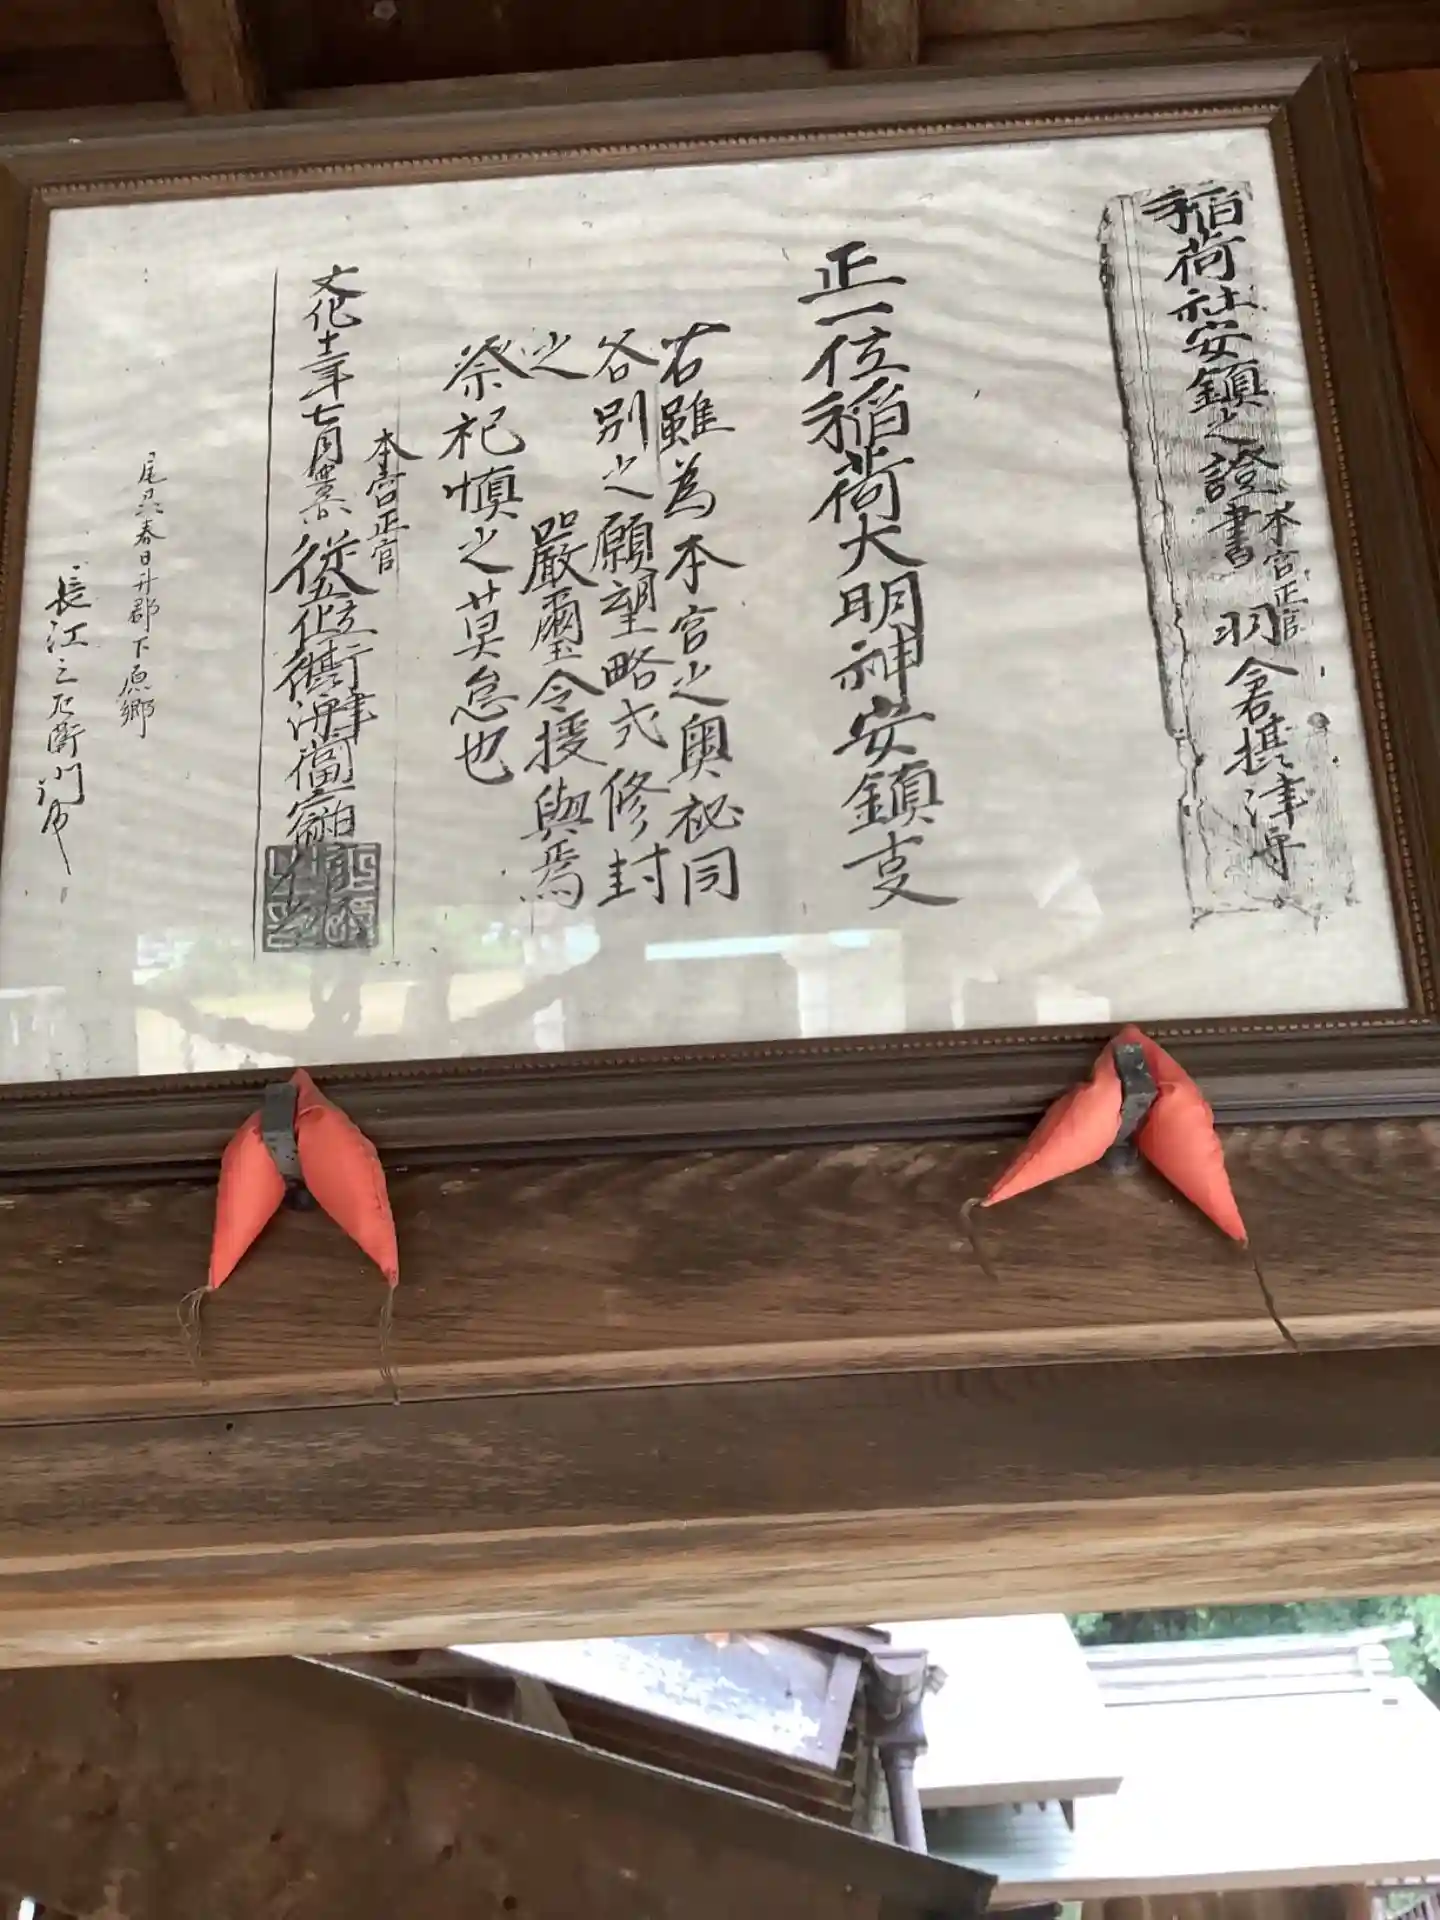 稲荷社安鎮之證書
本宮正官
羽倉摂津守
正一位稲荷大明神安鎮支
右雖為本宮之奥祕同
各別之願望略式修封
之 嚴璽令授與焉
祭祀慎之莫怠也
本宮正官
文化十二年七月 從四位下行摂津守荷田宿祢
尾州春日井郡下原郷
長江三左衛門